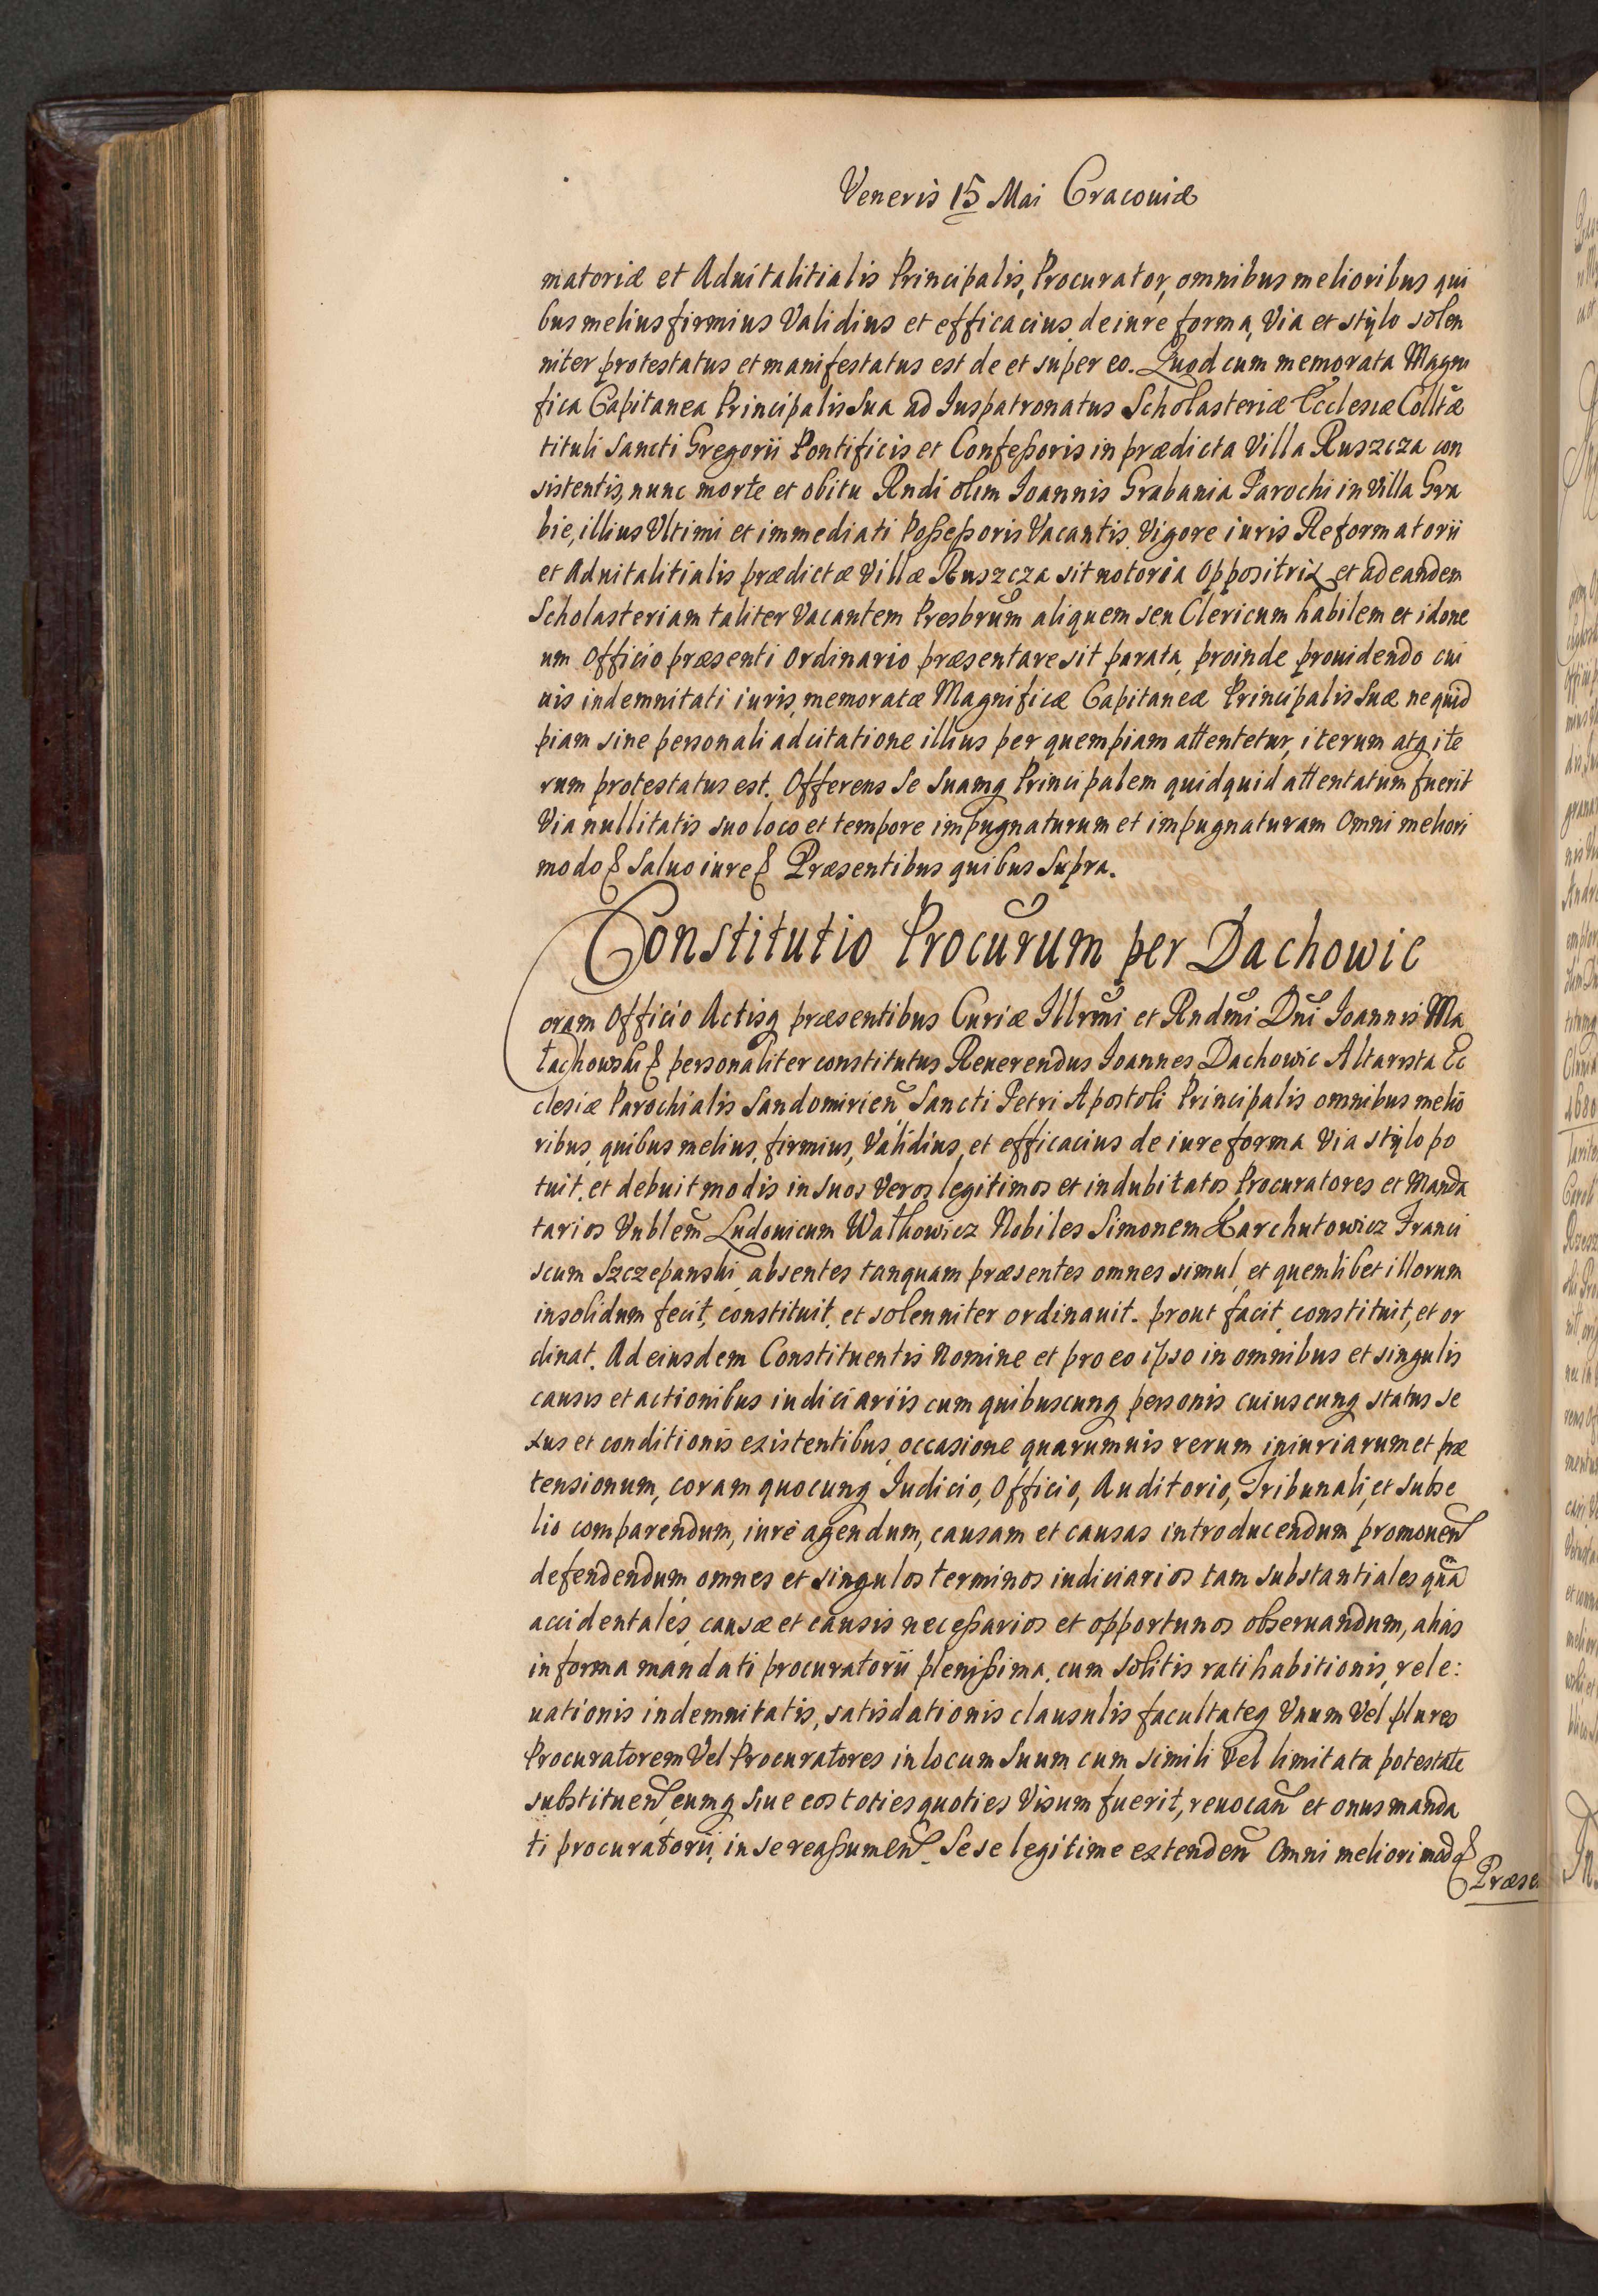 Veneris 15 Mai Cracouiæ
matoriæ et Aduitalitialis Principalis, Procurator, omnibus melioribus qui
bus melius firmius Validius et efficacius de iure forma, Via et stÿlo solen
niter protestatus et manifestatus est de et super eo. Quod cum memorata Magni
fica Capitanea Principalis Sua ad Iuspatronatus Scholasteriæ Ecclesiæ Colltæ
tituli Sancti Gregorii Pontificis et Confeßoris in prædicta Villa Ruszcza con
sistentis, nunc morte et obitu Rndi olim Ioannis Grabania Parochi in Villa Gra
bie, illius Vltimi et immediati Poßeßoris Vacantis. Vigore iuris Reformatorii
et Aduitalitialis prædictæ Villæ Ruszcza sit notoria Oppositrix et ad eandem
Scholasteriam taliter Vacantem Presbrum aliquem seu Clericum habilem et idone
um Officio præsenti Ordinario præsentare sit parata, proinde prouidendo cui
uis indemnitati iuris, memoratæ Magnificæ Capitaneæ Principalis Suæ ne quid
piam sine personali adcitatione illius per quempiam attentetur, iterum atq ite
rum protestatus est. Offerens Se Suamq Principalem quidquid attentatum fuerit
Via nullitatis suo loco et tempore impugnaturum et impugnaturam Omni meliori
modo & Saluo iure & Præsentibus quibus Supra.
Constitutio Procurum per Dachowic
Coram Officio Actisq præsentibus Curiæ Illrmi et Rndmi Dni Ioannis Ma
łachowski & personaliter constitutus Reuerendus Ioannes Dachowic Altarista Ec
clesiæ Parochialis Sandomirien Sancti Petri Apostoli Principalis omnibus melio
ribus, quibus melius, firmius, Validius, et efficacius de iure forma Via stÿlo po
tuit, et debuit modis in suos Veros legitimos et indubitatos Procuratores et Manda
tarios Vnblem Ludouicum Wałkowicz Nobiles Simonem Karchutowicz Franci
scum Szczepanski absentes tanquam præsentes omnes simul, et quemlibet illorum
insolidum fecit, constituit, et solenniter ordinauit. prout facit, constituit, et or
dinat. Ad eiusdem Constituentis Nomine et pro eo ipso in omnibus et singulis
causis et actionibus iudiciariis cum quibuscunq personis cuiuscunq status se
xus et conditionis existentibus, occasione quarumuis rerum iniuriarum et præ
tensionum, coram quocunq Iudicio, Officio, Auditorio, Tribunali, et Subse
lio comparendum, iure agendum, causam et causas introducendum promouen
defendendum omnes et singulos terminos iudiciarios tam substantiales quã
accidentales, causæ et causis neceßarios et opportunos obseruandum, alias
in forma mandati procuratorii plenißima, cum Solitis ratihabitionis, rele:
uationis indemnitatis, satisdationis clausulis facultateq Vnum Vel plures
Procuratorem Vel Procuratores in locum Suum cum simili Vel limitata potestate
substituen, eumq Siue eos toties quoties Visum fuerit, reuocan et onus manda
ti procuratorii, in se reaßumen. Sese legitime extenden Omni meliori modo &
Præse